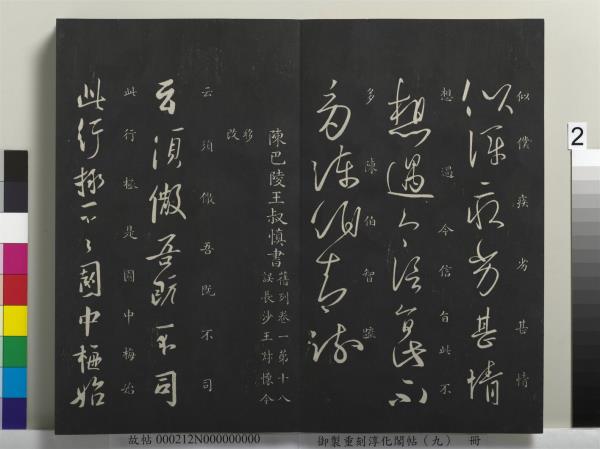 似僕疾劣甚情
似僕疾劣甚情
想過今信旨此不
想過今信旨此不
多陳伯智疏
多陳伯智疏
陳巴陵王叔慎書
舊列卷一第十八
誤長沙王叔懷今
移
改
云須倣吾既不司
云須倣吾既不司
此行極是園中梅始
此行極是園中梅始
2
故帖 000212N000000000
御製重刻淳化閣帖（九） 冊